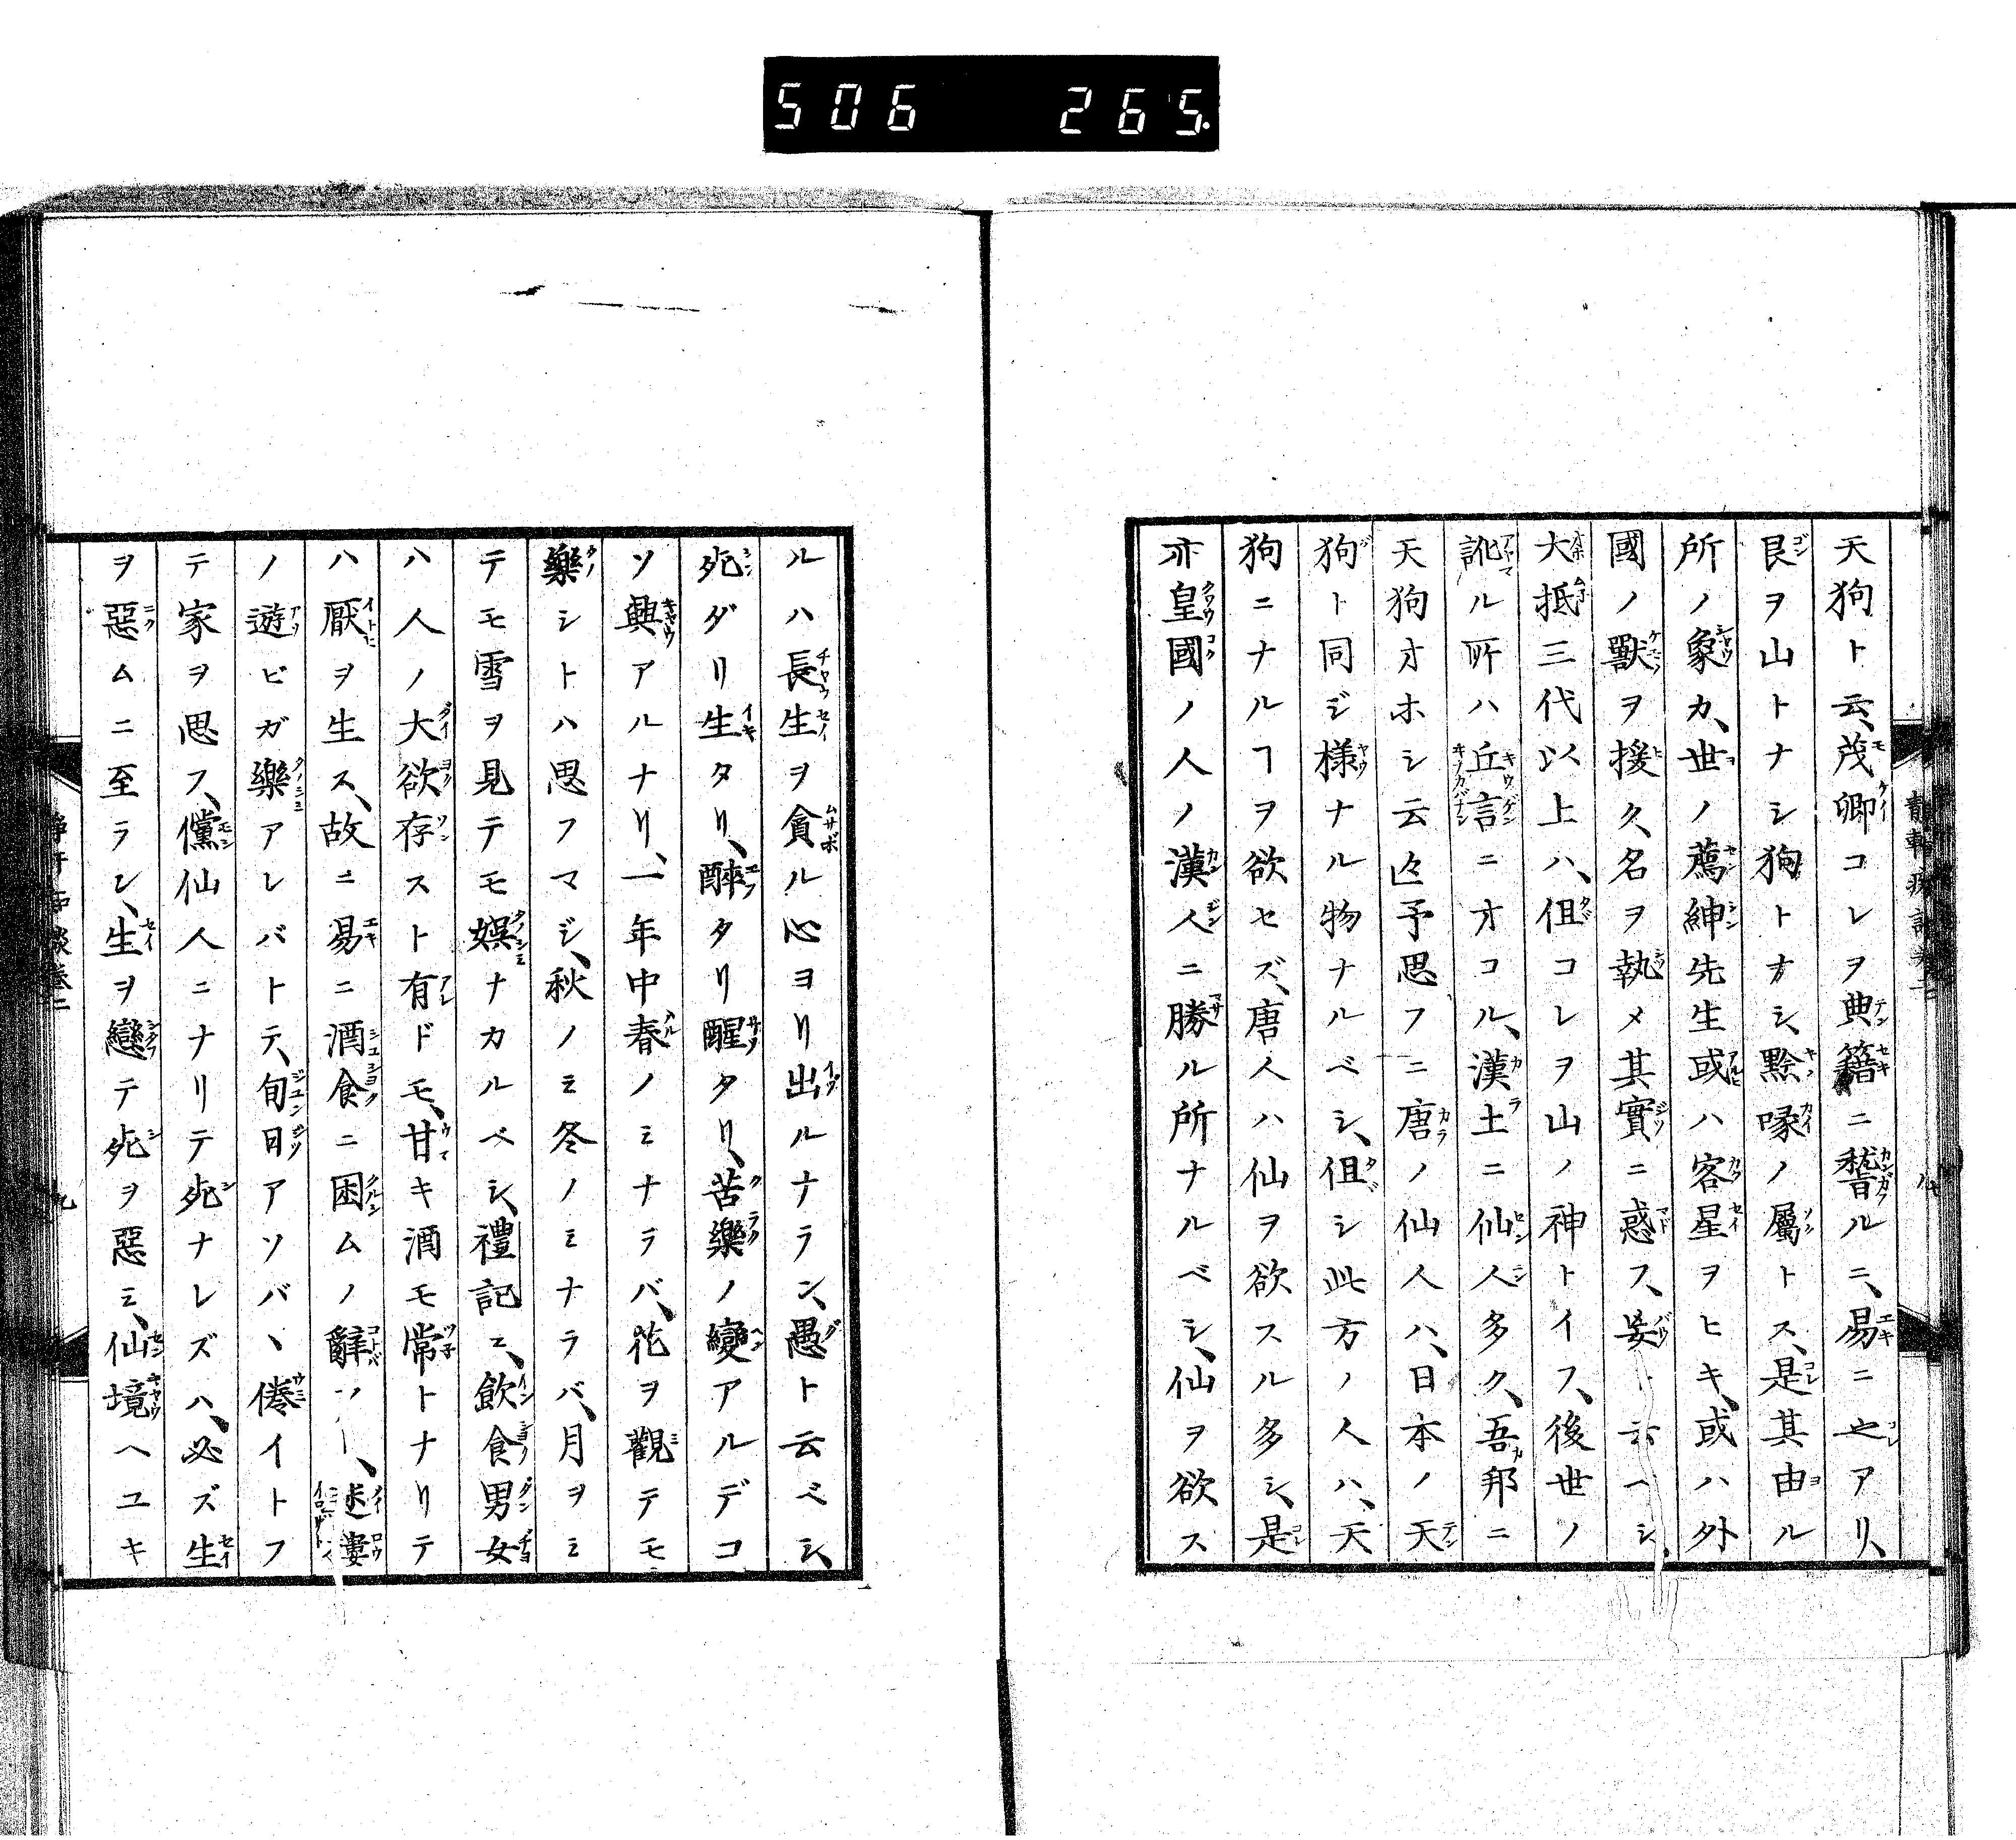 506 265.
天狗ト云、茂卿コレヲ典籍ニ稽ルニ、易ニ之アリ、
艮ヲ山トナシ狗トナシ、黔喙ノ屬トス、是其由ル
所ノ象カ、世ノ薦紳先生或ハ客星ヲヒキ、或ハ外
國ノ獸ヲ援ク、名ヲ執メ其實ニ惑フ、妄ト云ヘシ、
大抵三代以上ハ、伹コレヲ山ノ神トイフ、後世ノ
訛ル所ハ丘言ニオコル、漢土ニ仙人多ク、吾邦ニ
天狗オホシ云〻予思フニ唐ノ仙人ハ、日本ノ天
狗ト同ジ様ナル物ナルベシ、伹シ此方ノ人ハ、天
狗ニナルヿヲ欲セズ、唐人ハ仙ヲ欲スル多シ、是
亦皇國ノ人ノ漢人ニ勝ル所ナルベシ、仙ヲ欲ス
ルハ長生ヲ貪ル心ヨリ出ルナラン、愚ト云ベシ、
死ダリ生タリ、醉タリ醒タリ、苦樂ノ變アルデコ
ソ興アルナリ、一年中春ノミナラバ、花ヲ觀テモ
樂シトハ思フマジ、秋ノミ冬ノミナラバ、月ヲミ
テモ雪ヲ見テモ娯ナカルベシ、禮記ニ、飲食男女
ハ人ノ大欲存スト有ドモ、甘キ酒モ常トナリテ
ハ厭ヲ生ス、故ニ易ニ酒食ニ困ムノ辭アリ、迷婁
ノ遊ビガ樂アレバトテ、旬日アソバヽ倦イトフ
テ家ヲ思フ、儻仙人ニナリテ死ナレズハ、必ズ生
ヲ惡ムニ至ラン、生ヲ戀テ死ヲ惡ミ、仙境ヘユキ
九